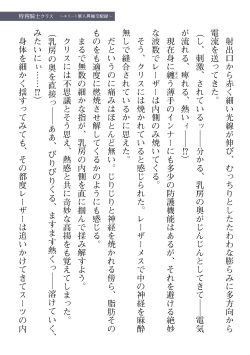 特務騎士クリス
射出口から赤く細い光線が伸び、むっちりとしたたわわな膨らみに多方向から
電流を送ってきた。
（し、刺激、されているッ――分かる、乳房の奥がじんじんとしてきて――電気
が流れる、痺れる、熱いィ――⁉）
現在身に纏う薄手のインナーにも多少の防護機能はあるが、それを避ける絶妙
な波数でレーザーは内側のみ焼いてくる。
そう、クリスには焼かれていると感じられた。レーザーメスで中の神経を麻酔
無しで縫合されているかに思えた。
だというのに痛みはほとんど無い。じりじりと神経を焼かれる傍ら、脂肪その
ものをも適度に燃焼させ解してくるかのようにも感じる。
まるで無数の細かな指が、乳房の内側を直に掴んで揉み解すようだ。
クリスには不快とそう思え、熱感と共に奇妙な高揚をも覚えてしまった。
（乳房の奥を直接っ――ああ、ぴりぴりくる、ますます熱くっ――溶けていく、
みたいにぃ――⁉）
身体を細かく揺すってみても、その都度レーザーは追いかけてきてスーツの内